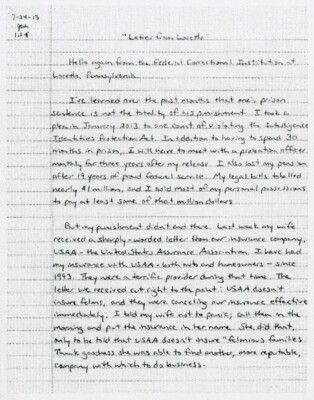 7-28-13
"Letter from Loretto"
Hello again from the Federal Correctional Institution at
Loretto, Pennsylvania.
I've learned over the past months that one's prison
sentence is not the totality of his punishment. I took a
plea in January 2013 to one count of violating the Intelligence
Identities Protection Act. In addition to having to spend 30
months in prison, I will have to meet with a probation officer
monthly for three years after my release. I also lost my pension
after 19 years of proud federal service. My legal bills totalled
nearly $1 million, and I sold most of my personal possessions
to pay at least some of that million dollars.
But my punishment didn't end there. Last week my wife
received a sharply-worded letter from our insurance company,
USAA - the United States Assurance Association. I have had
my insurance with USAA - both auto and homeowners - since
1993. They were a terrific provider during that time. The
letter we received cut right to the point: USAA doesn't
insure felons, and they were canceling our insurance effective
immediately. I told my wife not to panic; call them in the
morning and put the insurance in her name. She did that,
only to be told that USAA doesn't insure "felonious families."
Thank goodness she was able to find another, more reputable,
company with which to do business.